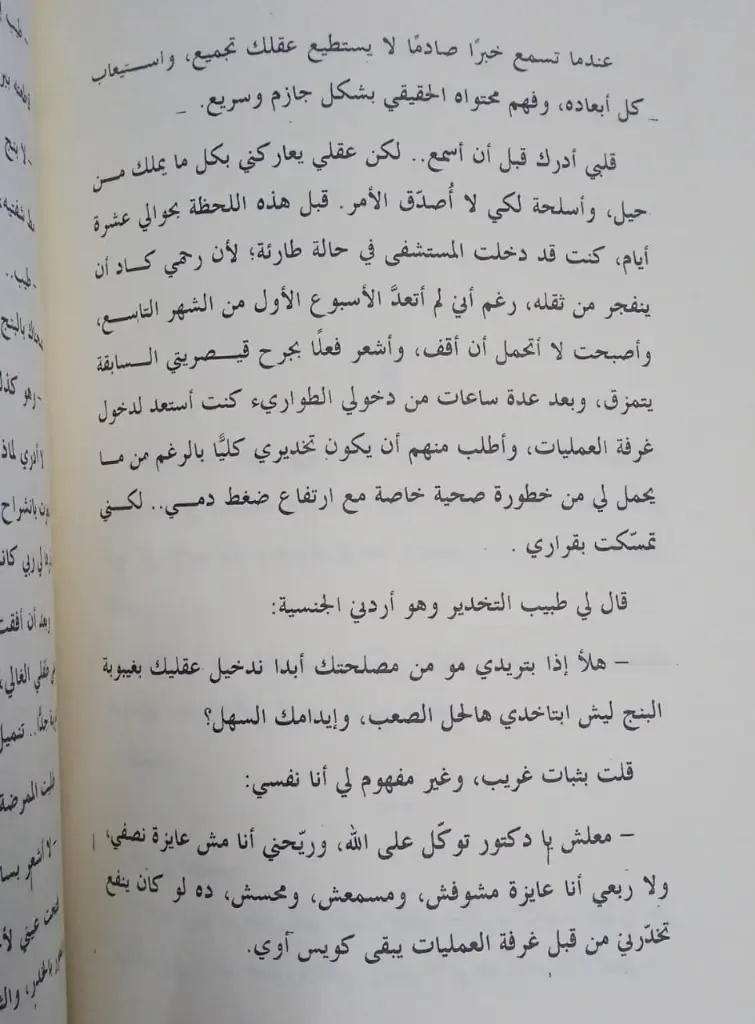 عندما تسمع خبرًا صادمًا لا يستطيع عقلك تجميع، واستيعاب
كل أبعاده، وفهم محتواه الحقيقي بشكل جازم وسريع.
قلبي أدرك قبل أن أسمع.. لكن عقلي يعاركني بكل ما يملك من
حيل، وأسلحة لكي لا أُصدّق الأمر. قبل هذه اللحظة بحوالي عشرة
أيام، كنت قد دخلت المستشفى في حالة طارئة؛ لأن رحمي كاد أن
ينفجر من ثقله، رغم أني لم أتعدَّ الأسبوع الأول من الشهر التاسع،
وأصبحت لا أتحمل أن أقف، وأشعر فعلًا بجرح قيصريتي السابقة
يتمزق، وبعد عدة ساعات من دخولي الطواريء كنت أستعد لدخول
غرفة العمليات، وأطلب منهم أن يكون تخديري كليًّا بالرغم من ما
يحمل لي من خطورة صحية خاصة مع ارتفاع ضغط دمي.. لكني
تمسّكت بقراري .
قال لي طبيب التخدير وهو أردني الجنسية:
– هلأ إذا بتريدي مو من مصلحتك أبدا ندخيل عقليك بغيبوبة
البنج ليش ابتاخدي هالحل الصعب، وإيدامك السهل؟
قلت بثبات غريب، وغير مفهوم لي أنا نفسي:
– معلش يا دكتور توكّل على الله، وريّحني أنا مش عايزة نصفي،
ولا ربعي أنا عايزة مشوفش، ومسمعش، ومحسش، ده لو كان ينفع
تخدّرني من قبل غرفة العمليات يبقى كويس آوي.